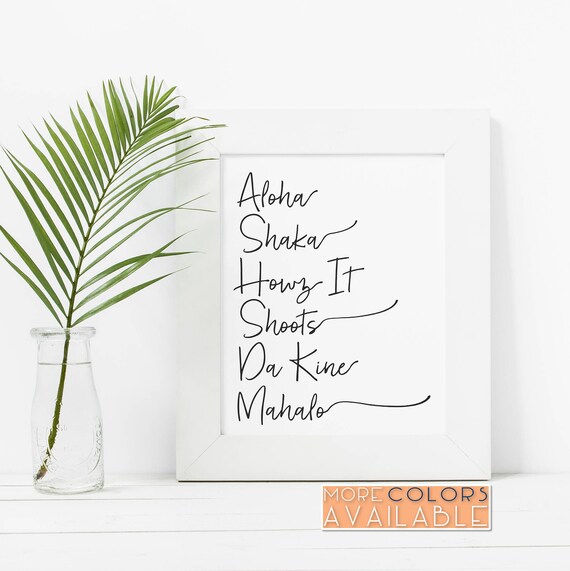 Aloha
Shaka
Howz It
Shoots
Da Kine
Mahalo
MORE COLORS
AVAILABLE